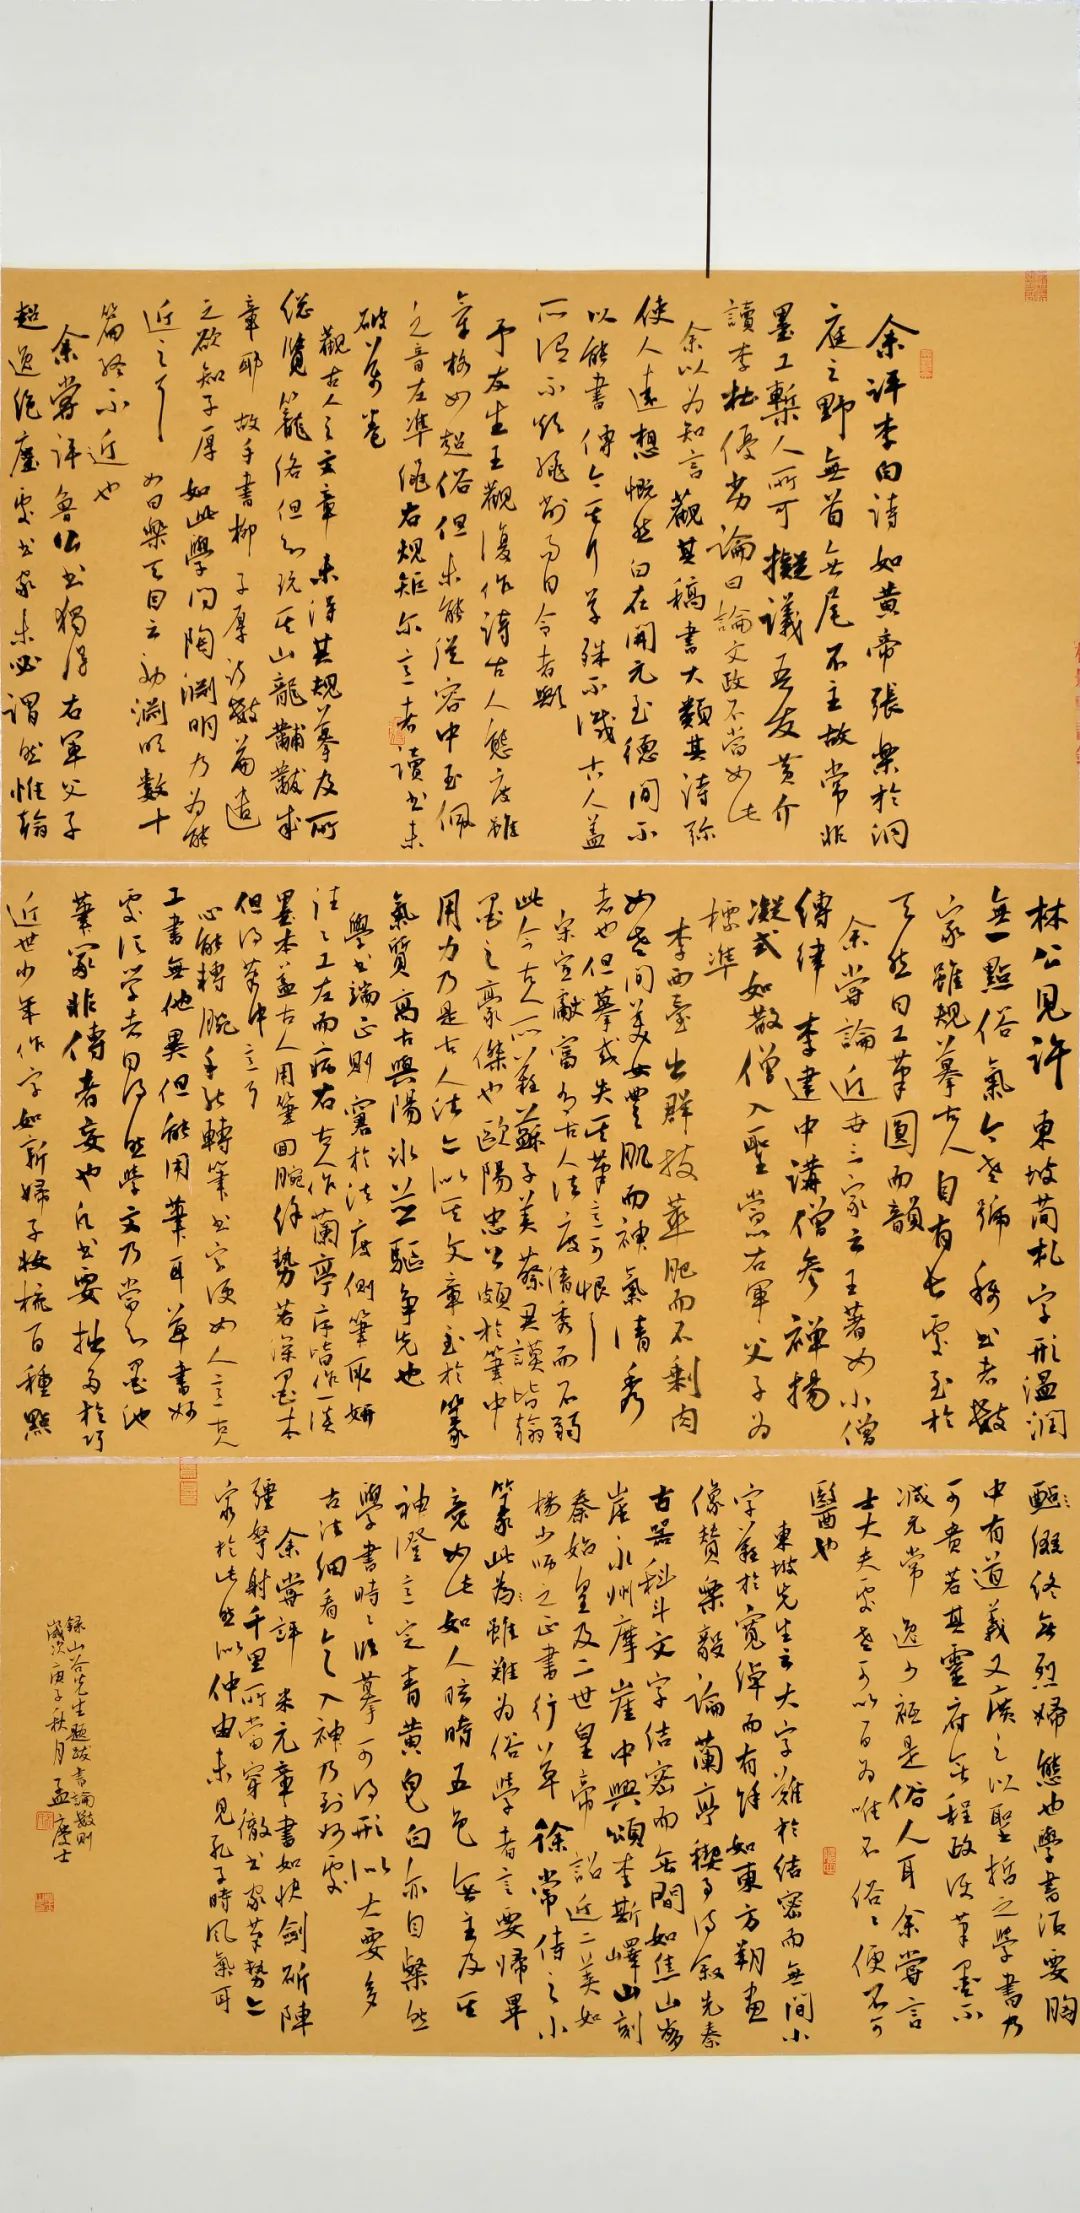 余評李白詩如黃帝張樂於洞
庭之野無首無尾不主故常非
墨工槧人所可擬議吾友黃介
讀李杜優劣論曰論文政不當如此
余以為知言觀其稿書大類其詩弥
使人遠想慨然白在開元至德間不
以能書傳今其行草殊不減古人蓋
所謂不煩繩削而自合者歟
予友生王觀復作詩古人態度雖
氣格如超俗但未能從容中玉佩
之音左準繩右規矩尔意者讀書未
破萬卷
觀古人之文章未得其規摹及所
総覽籠絡但知玩其山龍黼黻成
章耶故手書柳子厚詩數篇遺
之欲知子厚如此學問陶淵明乃為能
近之耳如白樂天自云効淵明數十
篇終不近也
余嘗評魯公書獨得右軍父子
超逸絕塵處書家未必謂然惟翰
林公見許東坡簡札字形温潤
無一點俗氣今世號稱書者數
家雖規摹古人自有長處至於
天然自工筆圓而韻
余嘗論近世三家云王著如小僧
縛律李建中講僧参禅楊
凝式如散僧入聖當以右軍父子為
標準
李西臺出群拔萃肥而不剩肉
如世間美女豐肌而神氣清秀
者也但摹或失其筆意可恨耳
宋宣獻富有古人法度清秀而不弱
此今古人所難蘇子美蔡君謨皆翰
墨之豪傑也歐陽忠公頗於筆中
用力乃是古人法今以其文章至於篆
氣質高古與陽冰並驅争先也
學書端正則窘於法度側筆取妍
往往工左而病右古人作蘭亭序皆作一
墨本蓋古人用筆回腕餘勢若深墨本
但得筆中意耳
心能轉腕手能轉筆書字便如人意古人
工書無他異但能用筆耳草書妙
處須學者自得然學久乃當知墨池
筆冢非傳者妄也凡書要拙多於巧
近世少年作字如新婦子妝梳百種點
綴終無烈婦態也學書須要胸
中有道義又廣之以聖哲之學書乃
可貴若其靈府無程政使筆墨不
減元常逸少秪是俗人耳余嘗言
士大夫處世可以百為唯不俗俗便不可
醫也
東坡先生云大字難於結密而無間小
字難於寬綽而有餘如東方朔畫
像贊樂毅論蘭亭禊事詩敘先秦
古器科斗文字結密而無間如焦山崩
崖永州摩崖中興頌李斯嶧山刻
秦始皇及二世皇帝詔近二美如
楊少師之正書行草徐常侍之小
篆此為雖難為俗學者言要歸畢
竟如此如人眩時五色無主及其
神澄意定青黃皂白亦自粲然
學書時時臨摹可得形似大要多
古法細看令入神乃到妙處
余嘗評米元章書如快劍斫陣
彊弩射千里所當穿徹書家筆勢亦
窮於此然似仲由未見孔子時風氣耳
録山谷先生題跋書論數則
歲次庚子秋月孟慶士